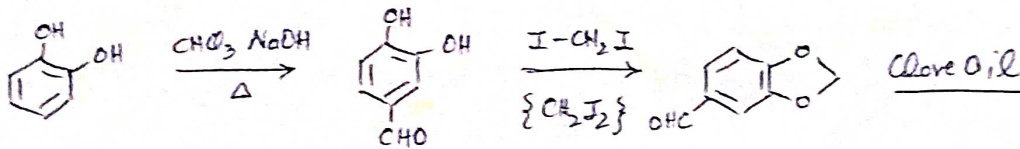 OH
OH
CHCl3 NaOH
Δ
OH
OH
CHO
I-CH2 I
{CH2I2}
O
O
OHC
Clove Oil